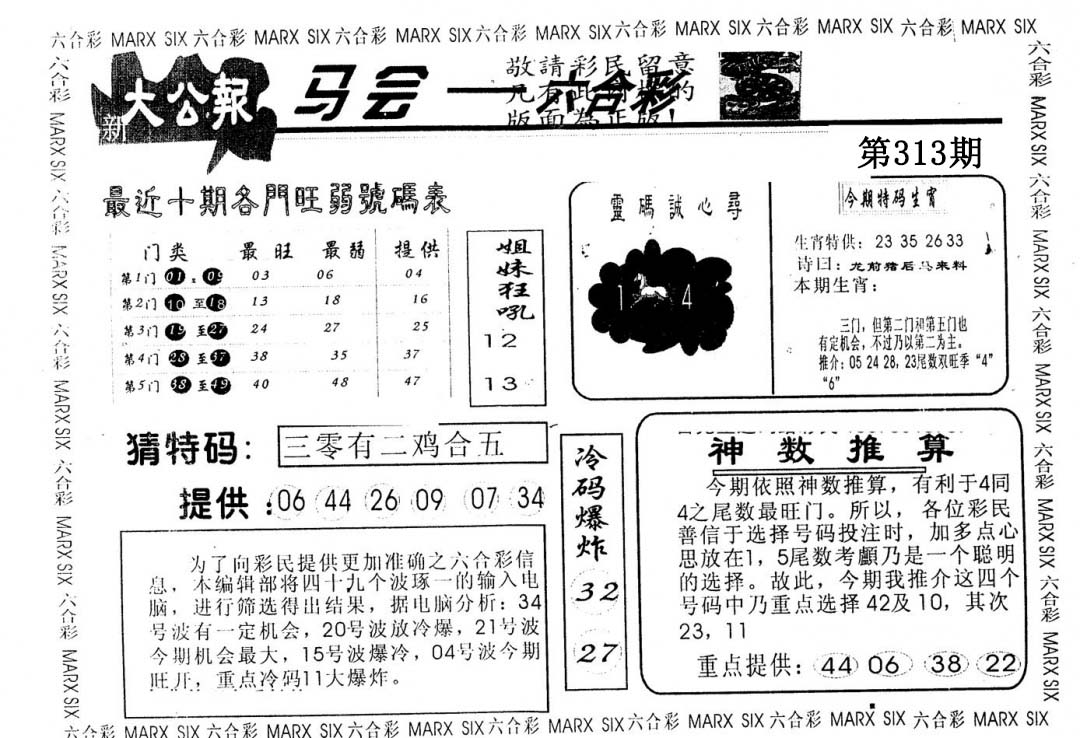 六合彩 MARX SIX 六合彩 MARX SIX 六合彩 MARX SIX 六合彩 MARX SIX 六合彩 MARX SIX 六合彩 MARX SIX 六合彩 MARX SIX
六合彩 MARX SIX 六合彩 MARX SIX 六合彩 MARX SIX 六合彩 MARX SIX 六合彩 MARX SIX
新 大公報
马会一六合彩
敬請彩民留意
凡有此
的
版面為正版!
第313期
最近十期各門旺弱號碼表
门类 最旺 最弱 提供
第1门 01 至 09 03 06 04
第2门 10 至 18 13 18 16
第3门 19 至 27 24 27 25
第4门 28 至 37 38 35 37
第5门 38 至 49 40 48 47
姐妹狂吼
12
13
靈碼誠心尋
1 4
今期特码生肖
生肖特供: 23 35 26 33
诗曰: 龙前猪后马来料
本期生肖:
三门, 但第二门和第五门也
有定机会, 不过乃以第二为主。
推介: 05 24 28, 23尾数双旺季“4”
“6”
猜特码: 三零有二鸡合五
提供: 06 44 26 09 07 34
为了向彩民提供更加准确之六合彩信
息, 本编辑部将四十九个波琢一的输入电
脑, 进行筛选得出结果, 据电脑分析: 34
号波有一定机会, 20号波放冷爆, 21号波
今期机会最大, 15号波爆冷, 04号波今期
旺开, 重点冷码11大爆炸。
冷码爆炸
32
27
神数推算
今期依照神数推算, 有利于4同
4之尾数最旺门。所以, 各位彩民
善信于选择号码投注时, 加多点心
思放在1, 5尾数考顱乃是一个聪明
的选择。故此, 今期我推介这四个
号码中乃重点选择42及10, 其次
23, 11
重点提供: 44 06 38 22
六合彩 MARX SIX 六合彩 MARX SIX 六合彩 MARX SIX 六合彩 MARX SIX 六合彩 MARX SIX
六合彩 MARX SIX 六合彩 MARX SIX 六合彩 MARX SIX 六合彩 MARX SIX 六合彩 MARX SIX 六合彩 MARX SIX 六合彩 MARX SIX